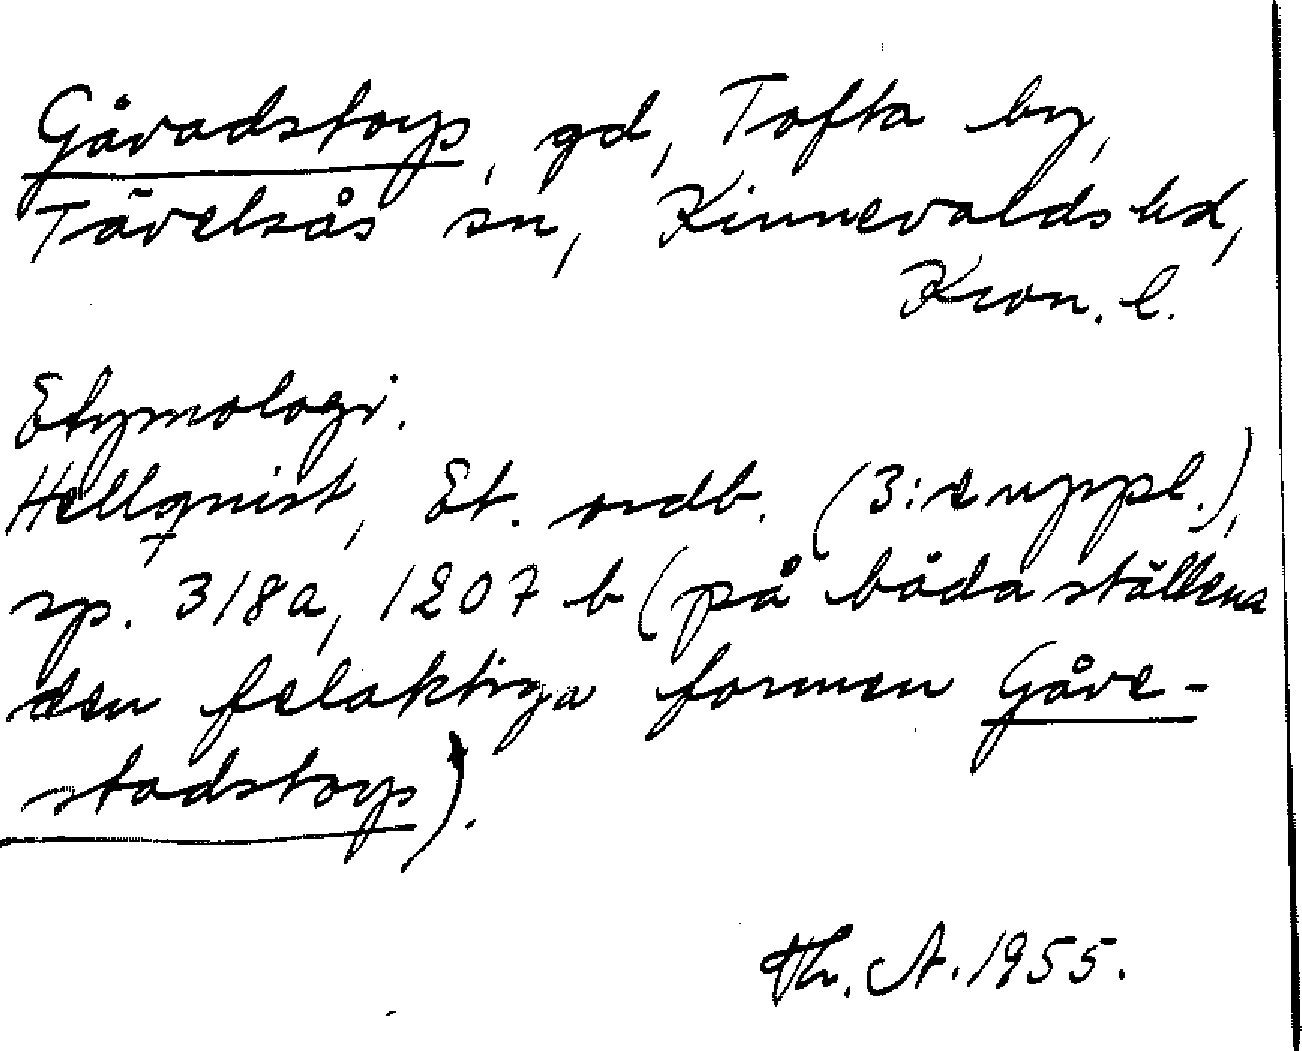 Gåvadstorp, gd, Tofta by,
Tävelsås sn, Kinnevalds hd,
Kron. l.
Etymologi.
Hellquist, Et. ordb. (3:e uppl.),
sp. 318a, 1207 b (på båda ställena
den felaktiga formen Gåve-
stadstorp).
Th. A. 1955.